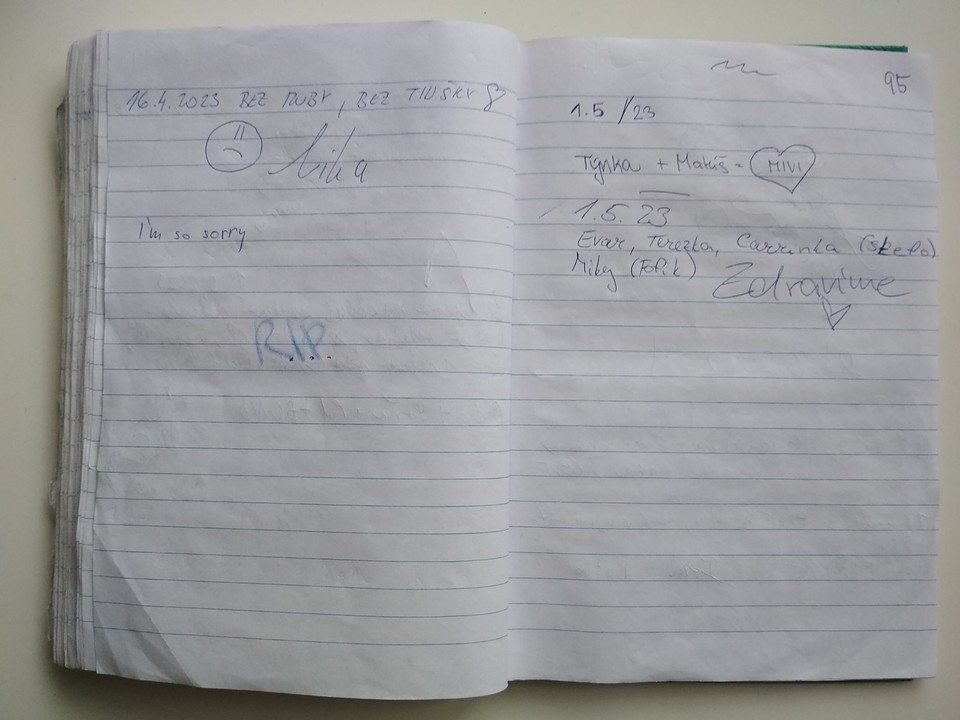 16.4.2023 BEZ RUBY, BEZ TINUŠKY
Nika
I'm so sorry
R.I.P.
95
1.5/23
Týnka + Matúš = MIVI
1.5.23
Evar, Terezka, (Skefo)
Miky (Fofik)
Zdravíme